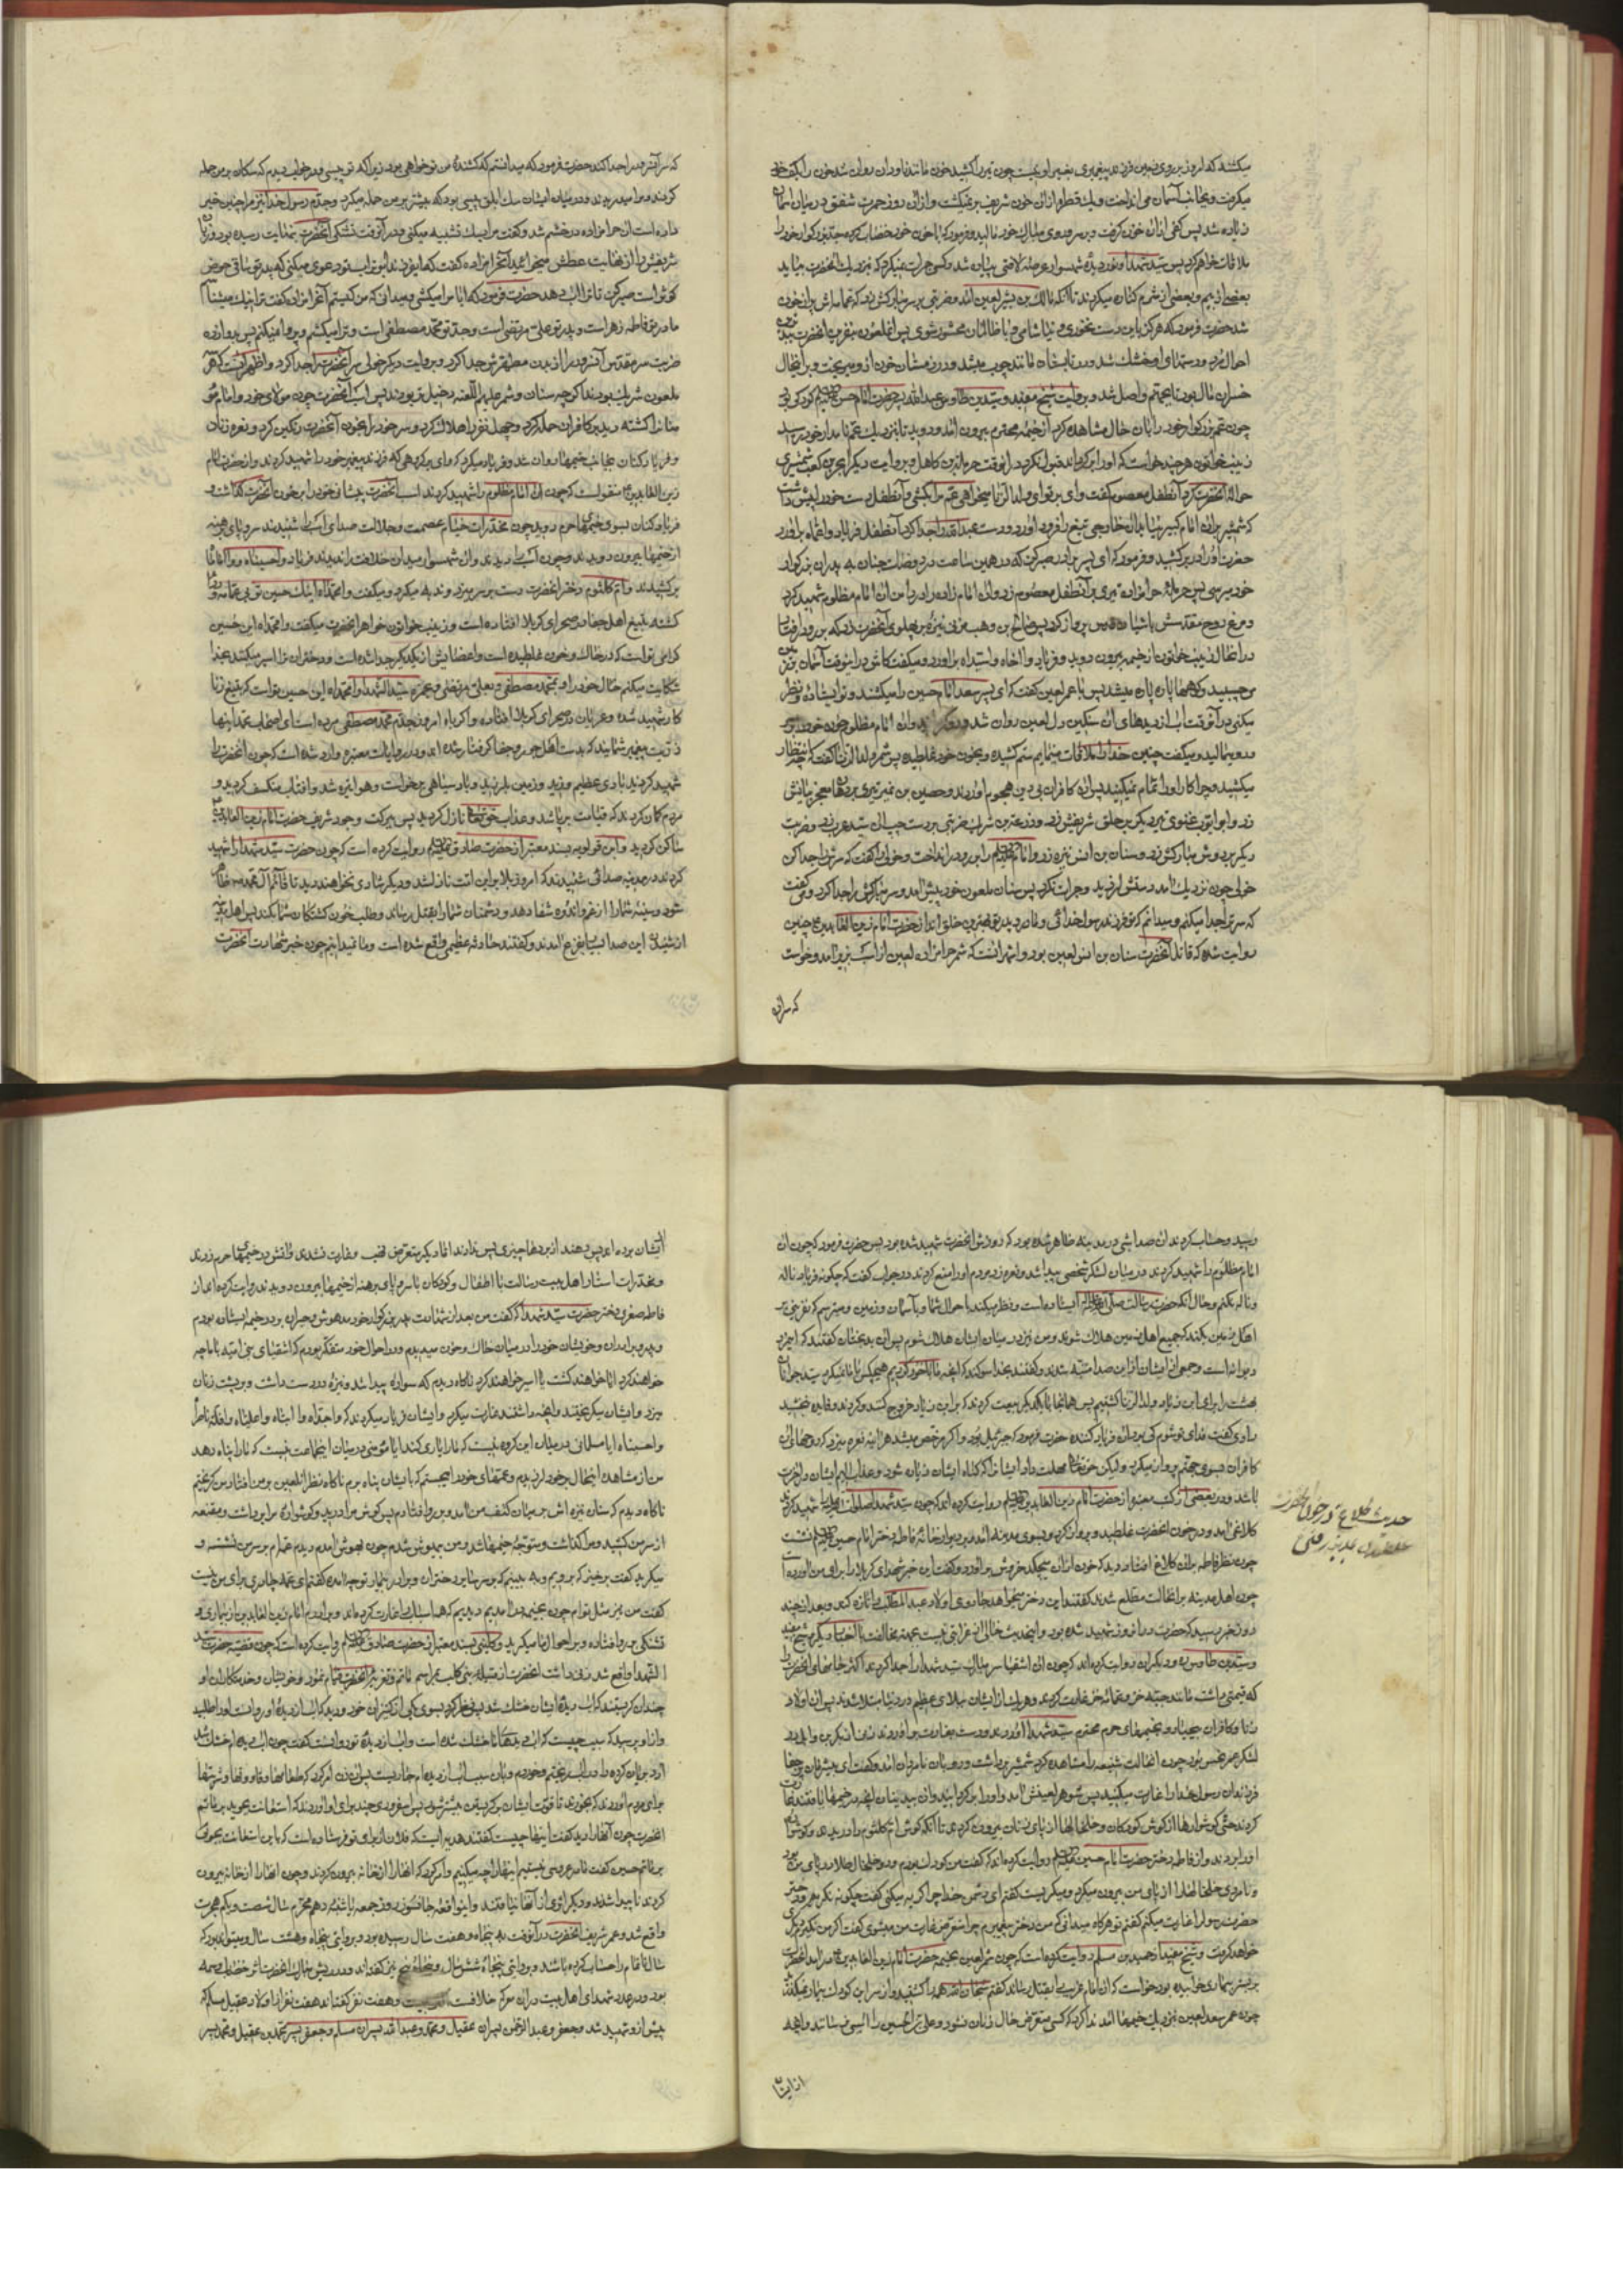 میکشند که امروز بر روی زمین فرزند پیغمبری بغیر او نیست چون تیر را کشید خون مانند ناودان روان شد خون را بکف
میگرفت و بجانب آسمان می انداخت و یک قطره از آن خون شریف بر نمیگشت و از آن روز حمرت شفق در میان آسمان
زیاده شد پس کفی از آن خون گرفت و بر سر و روی مبارک خود مالید و فرمود که با خون خود خضاب کرده جد بزرگوار خود را
ملاقات خواهم کرد پس
بعضی از بیم و بعضی از شرم کناره میکردند تا آنکه مالک بن یسر لعین آمد و ضربتی بر سر مبارکش زد که عمامه اش پر از خون
شد حضرت فرمود که هرگز باین دست نخوری و نیاشامی و با ظالمان محشور شوی پس آن ملعون بنفرین آنحضرت
احوال مرد و دستهای او خشک شد در تابستان مانند چوب میشد و در زمستان خون از او میریخت و بر این حال
خسران مآل بود تا بجهنم واصل شد و بروایت شیخ مفید و سید بن طاوس عبدالله پسر حضرت امام حسن کودکی بود
چون عم بزرگوار خود را بآن حال مشاهده کرد از خیمه محترم بیرون آمد و دوید تا بنزدیک عم نامدار خود رسید
زینب خاتون هر چند خواست که او را برگرداند قبول نکرد در آنوقت حرملة بن کاهل و بروایت دیگر ابجر بن کعب شمشیری
حواله آنحضرت کرد آن طفل معصوم گفت وای بر تو ای ولد الزنا میخواهی عم مرا بکشی و آن طفل دست خود را پیش داشت
خود میرسی پس حرمله حرامزاده تیری بر آن طفل معصوم زد و آن امام زاده را در دامن آن امام مظلوم شهید کرد
و مرغ روح مقدسش بآشیان قدس پرواز کرد پس صالح بن وهب مزنی نیزه بر پهلوی آنحضرت زد که بر رو در افتاد
در آن حال زینب خاتون از خیمه بیرون دوید و فریاد وا اخاه وا سیداه برآورد و میگفت کاش در اینوقت آسمان بر زمین
می چسبید و کوهها پاره پاره میشد پس با عمر لعین گفت که ای پسر سعد امام حسین را میکشند و تو ایستاده و نظر
میکنی در آنوقت آب از دیدهای آن سنگین دل لعین روان شد
و رو میمالید و میگفت چنین خدا را ملاقات مینمایم ستم کشیده و بخون خود غلطیده پس شمر ولد الزنا گفت که چه انتظار
میکشید و چرا کار او را تمام نمیکنید پس آن کافران بی دین هجوم آوردند و حصین بن نمیر تیری بر دهان معجز بیانش
زد و ابو ایوب غنوی تیر دیگر بر حلق شریفش زد و زرعة بن شریک ضربتی بر دست چپ آن سید عرب زد و ضربت
دیگر بر دوش مبارکش زد و سنان بن انس نیزه زد و امام را بر رو در انداخت و خولی را گفت که سرش را جدا کن
خولی چون نزدیک آمد دستش لرزید و جرات نکرد پس سنان ملعون خود پیش آمد و سر مبارکش را جدا کرد و میگفت
که سر تو را جدا میکنم و میدانم که تو فرزند رسول خدائی و مادر و پدر تو بهترین خلق اند از حضرت امام زین العابدین ع چنین
روایت شده که قاتل آنحضرت سنان بن انس لعین بود و اشهر آنست که شمر حرامزاده لعین از اسب بزیر آمد و خواست
که سر آن
که سر آن سرور را جدا کند حضرت فرمود که میدانستم که کشنده من تو خواهی بود زیرا که تو پیسی و در خواب دیدم که سگان بر من حمله
کردند و مرا میدریدند و در میان ایشان سگ ابلق پیسی بود که بیشتر بر من حمله میکرد و جدم رسول خدا نیز مرا چنین خبر
داده است آن حرامزاده در خشم شد و گفت مرا بسگ تشبیه میکنی و در آنوقت تشنگی آنحضرت بنهایت رسیده بود و زبان
شریفش را از نهایت عطش میخائید آن حرامزاده گفت که ای فرزند ابوتراب تو دعوی میکنی که پدر تو ساقی حوض
کوثر است صبر کن تا تو را آب دهد حضرت فرمود که آیا مرا میکشی و میدانی که من کیستم آن حرامزاده گفت ترا نیک میشناسم
مادر تو فاطمه زهراست و پدر تو علی مرتضی است و جد تو محمد مصطفی است و ترا میکشم و پروا نمیکنم پس بدوازده
ضربت سر مقدس آن سرور را از بدن مطهرش جدا کرد و بروایت دیگر خولی سر آنحضرت را جدا کرد و اظهر آنست که هر سه
ملعون شریک بودند اگر چه سنان و شمر علیهم اللعنه دخیل تر بودند پس اسب آنحضرت چون مولای خود و امام مومنان
را کشته دید بر کافران حمله کرد و چهل نفر را هلاک کرد و سر خود را بخون آنحضرت رنگین کرد و نعره زنان
و فریاد کنان بجانب خیمها روان شد و فریاد میکرد که وای بر گروهی که فرزند پیغمبر خود را شهید کردند و از حضرت امام
زین العابدین ع منقولست که چون آن امام مظلوم را شهید کردند اسب آنحضرت پیشانی خود را بر خون آنحضرت گذاشت و
فریاد کنان بسوی خیمهای حرم دوید چون مخدرات خیام عصمت و جلالت صدای اسب را شنیدند سر و پای برهنه
از خیمها بیرون دویدند و چون اسب را دیدند و آن شهسوار میدان خلافت را ندیدند فریاد وا حسیناه و وا اماماه
بر کشیدند و ام کلثوم دختر آنحضرت دست بر سر میزد و ندبه میکرد و میگفت وا محمداه اینک حسین تو بی عمامه و ردا
کشته بتیغ اهل جفا در صحرای کربلا افتاده است و زینب خاتون خواهر آنحضرت میگفت وا محمداه این حسین
گرامی تو است که در خاک و خون غلطیده است و اعضایش از یکدیگر جدا شده است و دختران ترا اسیر میکنند بخدا
شکایت میکنم حال خود را و بمحمد مصطفی و بعلی مرتضی و بحمزه سید الشهدا وا محمداه این حسین تو است که بتیغ زنا
کار شهید شده و عریان در صحرای کربلا افتاده وا کرباه امروز جدم محمد مصطفی مرده است ای اصحاب محمد اینها
ذریت پیغمبر شمایند که بدست اهل جور و جفا گرفتار شده اند و در روایات معتبره وارد شده است که چون آنحضرت را
شهید کردند بادی عظیم وزید و زمین بلرزید و باد سیاهی برخواست و هوا تیره شد و آفتاب منکسف گردید و
مردم گمان کردند که قیامت برپا شد و عذاب حق تعالی نازل گردید پس ببرکت وجود شریف حضرت امام زین العابدین
ساکن گردید و ابن قولویه بسند معتبر از حضرت صادق روایت کرده است که چون حضرت سید شهدا را شهید
کردند در مدینه صدائی شنیدند که امروز بلا بر این امت نازل شد و دیگر شادی نخواهند دید تا قائم آل محمد ظاهر
شود و سینه شما را از غم و اندوه شفا دهد و دشمنان شما را بقتل رساند و طلب خون کشتگان شما بکند پس اهل مدینه
از شنیدن این صدا بسیار بفزع آمدند و گفتند حادثه عظیمی واقع شده است و ما نمیدانیم چون خبر شهادت آنحضرت
رسید و حساب کردند آن صدا شبی در مدینه ظاهر شده بود که روزش آنحضرت شهید شده بود پس حضرت فرمود که چون آن
امام مظلوم را شهید کردند در میان لشکر شخصی پیدا شد و نعره زد مردم او را منع کردند در جواب گفت که چگونه فریاد ناله
و ناله نکنم و حال آنکه حضرت رسالت ایستاده است و نظر میکند باحوال شما و بآسمان و زمین و میترسم که نفرینی بر
اهل زمین بکند که جمیع اهل زمین هلاک شوند و من نیز در میان ایشان هلاک شوم پس آن بدبختان گفتند که این مرد
دیوانه است و جمعی از ایشان از این صدا متنبه شدند و گفتند بخدا سوگند که آنچه ما با خود کردیم هیچکس با ما نمیکرد سید جوانان
بهشت را برای ابن زیاد ولد الزنا کشتیم پس همانجا با یکدیگر بیعت کردند که بر ابن زیاد خروج کنند و کردند و فایده نبخشید
راوی گفت فدای تو شوم کی بود آن فریاد کننده حضرت فرمود که جبرئیل بود و اگر مرخص میشد هر آینه نعره میزد که روحهای آن
کافران بسوی جهنم پرواز میکرد و لیکن حق تعالی مهلت داد ایشان را که گناه ایشان زیاد شود و عذاب الیم ایشان در آخرت
باشد و در بعضی از کتب معتبر از حضرت امام زین العابدین روایت کرده اند که چون سید شهدا را شهید کردند
کلاغی آمد و در خون آنحضرت غلطید و پرواز کرد و بسوی مدینه آمد و بر دیوار خانه فاطمه دختر امام حسین نشست
چون نظر فاطمه بر آن کلاغ افتاد و دید که خون از آن میچکد خروش برآورد و گفت این خبر شهدای کربلا را برای من آورده است
چون اهل مدینه بر آن حالت مطلع شدند گفتند این دختر میخواهد جادوی اولاد عبد المطلب را تازه کند و بعد از چند
روز خبر رسید که حضرت در آنروز شهید شده بود
و سید بن طاوس و دیگران روایت کرده اند که چون آن اشقیا سر مبارک سید شهدا را جدا کردند اکثر جامهای آنحضرت را
که قیمتی داشت مانند جبه خز و عمامه خز غارت کردند و هر یک از ایشان ببلای عظیم در دنیا مبتلا شدند پس آن اولاد
زنا و کافران بیحیا رو بخیمهای حرم محترم سید شهدا آوردند و دست بغارت برآوردند زنی از بکر بن وایل در
لشکر عمر نحس بود چون آن حالت شنیعه را مشاهده کرد شمشیر برداشت و رو بآن نامردان آمد و گفت ای بیشرمان بیحیا
فرزندان رسول خدا را غارت میکنید پس شوهر لعینش آمد و او را برگردانید و آن بیدینان آنچه در خیمها یافتند غارت
کردند حتی گوشوارها از گوش کودکان و خلخالها از پای زنان بیرون کردند تا آنکه گوش ام کلثوم را دریدند و گوشواره
او را بردند و از فاطمه دختر حضرت امام حسین روایت کرده اند که گفت من کودک بودم و دو خلخال طلا در پای من بود
و نامردی خلخالها را از پای من بیرون میکرد و میگریست گفتم ای دشمن خدا چرا گریه میکنی گفت چگونه نگریم و دختر
حضرت رسول را غارت میکنم گفتم تو هرگاه میدانی که من دختر پیغمبرم چرا متعرض غارت من میشوی گفت اگر من نگیرم دیگری
خواهد گرفت و شیخ مفید از حمید بن مسلم روایت کرده است که چون شمر لعین بخیمه حضرت امام زین العابدین ع درآمد آنحضرت
بر بستر بیماری خوابیده بود خواست که آن امام غریب را بقتل رساند گفتم سبحان الله همه را کشتید و از سر این کودک بیمار نمیگذرید
چون عمر سعد لعین بنزدیک خیمها آمد ندا کرد که کسی متعرض حال زنان نشود و علی بن الحسین را آسیبی نرسانید و آنچه
از ایشان
حدیث کلاغ در خون
از ایشان برده اید پس دهید از بردها چیزی پس ندادند اما دیگر متعرض نهب و غارت نشدند و آتش در خیمهای حرم زدند
و مخدرات استار اهل بیت رسالت با اطفال و کودکان با سر و پای برهنه از خیمها بیرون دویدند روایت کرده اند از
فاطمه صغری دختر حضرت سید شهدا که گفت من بعد از شهادت پدر بزرگوار خود مدهوش و حیران بر در خیمه ایستاده بودم
و پدر و برادران و خویشان خود را در میان خاک و خون میدیدم و در احوال خود متفکر بودم که اشقیای بنی امیه با ما چه
خواهند کرد آیا خواهند کشت یا اسیر خواهند کرد ناگاه دیدم که سواری پیدا شد و نیزه در دست داشت و بر پشت زنان
میزد و ایشان میگریختند و آنچه داشتند غارت میکرد و ایشان فریاد میکردند که وا جداه وا ابتاه وا علیاه وا قلة ناصراه
وا حسیناه آیا مسلمانی در میان این گروه نیست که ما را یاری کند آیا مؤمنی در میان این جماعت نیست که ما را پناه دهد
من از مشاهده این حال بر خود لرزیدم و عمهای خود را میجستم که بایشان پناه برم ناگاه نظر آن لعین بر من افتاد من گریختم
ناگاه دیدم که سنان نیزه اش بر میان کتف من آمد و بر رو افتادم پس گوش مرا درید و گوشواره مرا برداشت و مقنعه
از سر من کشید و مرا گذاشت و متوجه خیمها شد و من بیهوش شدم چون بهوش آمدم دیدم عمه ام بر سر من نشسته و
میگرید گفت برخیز که برویم و ببینم که بر سر سایر دختران و برادر بیمار تو چه آمد گفتم ای عمه چادری برای من نیست
گفت من نیز مثل توام چون بخیمه درآمدیم دیدیم که همه اسباب را غارت کرده اند و برادرم امام زین العابدین از بیماری و
تشنگی بر رو افتاده و بر احوال ما میگرید و کلینی بسند معتبر از حضرت صادق روایت کرده است که چون قضیه حضرت سید
الشهدا واقع شد زنی داشت آنحضرت از قبیله بنی کلب بمراسم ماتم و تعزیه آنحضرت قیام نمود و خویشان و خدمتکاران او
چندان گریستند که آب دیده ایشان خشک شد پس نظر کرد بسوی یکی از کنیزان خود و دید که آب از دیده او روانست او را طلبید
و از او پرسید که سبب چیست که آب دیدهای ما خشک شده است و آب از دیده تو روانست گفت چون آب دیده ام خشک شد
برای مردم آوردند که بخورند تا قوت ایشان بر گریه کردن بیشتر شود پس مرغی چند برای او آوردند که استعانت بجوید بر ماتم
آنحضرت چون آنها را دید گفت اینها چیست گفتند هدیه ایست که فلان از برای تو فرستاده است که باین استعانت بجوئی
بر ماتم حسین گفت ما در عروسی نیستیم اینها را چه میکنیم و امر کرد که آنها را از خانه بیرون کردند و چون آنها را از خانه بیرون
کردند ناپیدا شدند و دیگر اثری از آنها نیافتند و این واقعه جانسوز روز جمعه یا شنبه دهم محرم سال شصت و یکم هجرت
واقع شد و عمر شریف آنحضرت در آنوقت به پنجاه و هفت سال رسیده بود و بروایتی پنجاه و هشت سال و میتواند بود که
سال ناتمام را حساب کرده باشد و بروایتی پنجاه و شش سال و پنجاه و پنج نیز گفته اند و در ریش مبارک آنحضرت اثر خضاب وسمه
بود و در عدد شهدای اهل بیت در آن معرکه خلافست و هفت نفر گفته اند هفت نفر از اولاد عقیل مسلم که
پیش از او شهید شد و جعفر و عبد الرحمن پسران عقیل و محمد و عبد الله پسران مسلم و جعفر پسر محمد بن عقیل و محمد پسر